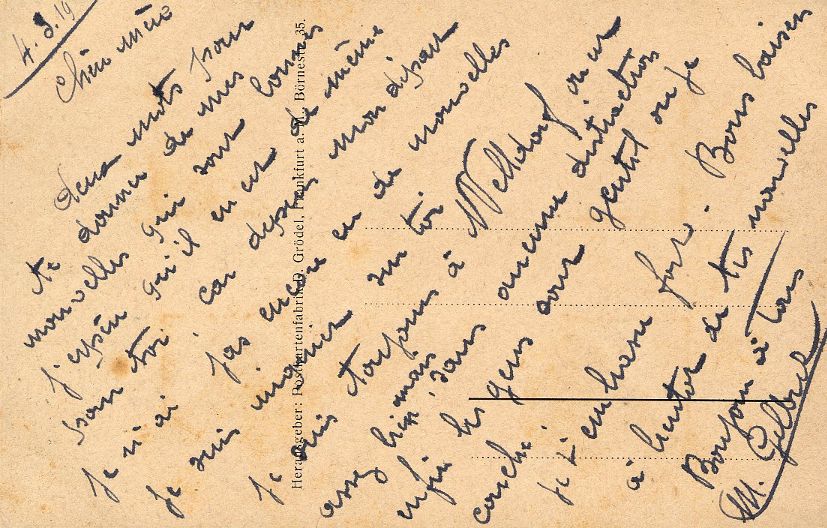 4.3.19
Chère mère
deux mots pour
te donner de mes
nouvelles qui sont bonnes
j'espère qu'il en est de même
pour toi, car depuis mon départ
je n'ai pas encore eu de nouvelles
je suis inquiet sur toi
je suis toujours à Welldorf, on est
assez bien, mais sans aucune distraction
enfin les gens sont gentil où je
couche.
je t'embrasse fort. Bons baisers
à bientôt de tes nouvelles
Bonjour à tous
M. Gelbert
Herausgeber: Postkartenfabrik D. Grödel, Frankfurt a. M., Börnestr. 35.